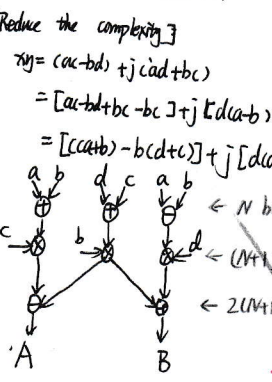 Reduce the complexity]
xy = (ac-bd) + j(ad+bc)
= [ac-bd+bc-bc]+j[d(a-b)
= [c(a+b) - b(d+c)]+j[d(
a b d c a b
+ + -
← N b
c × b × × d
← (N+1
- +
← 2(N+1
A B